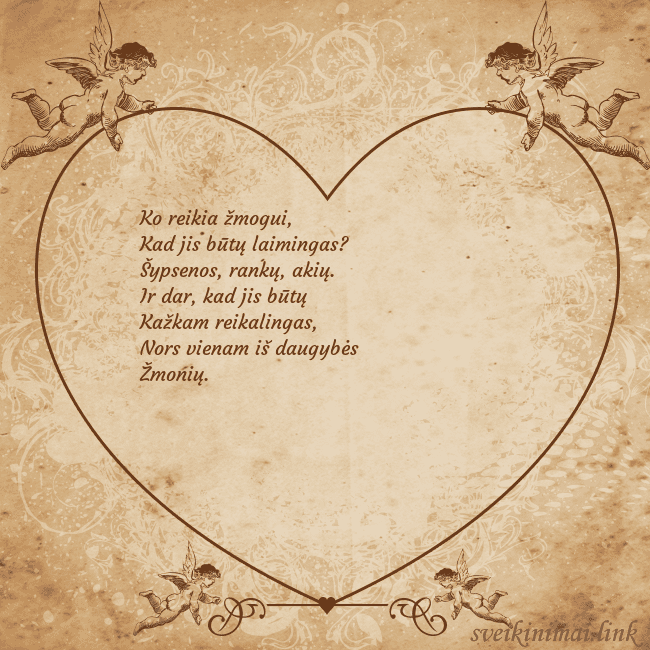 Ko reikia žmogui,
Kad jis būtų laimingas?
Šypsenos, rankų, akių.
Ir dar, kad jis būtų
Kažkam reikalingas,
Nors vienam iš daugybės
Žmonių.
sveikinimai.link